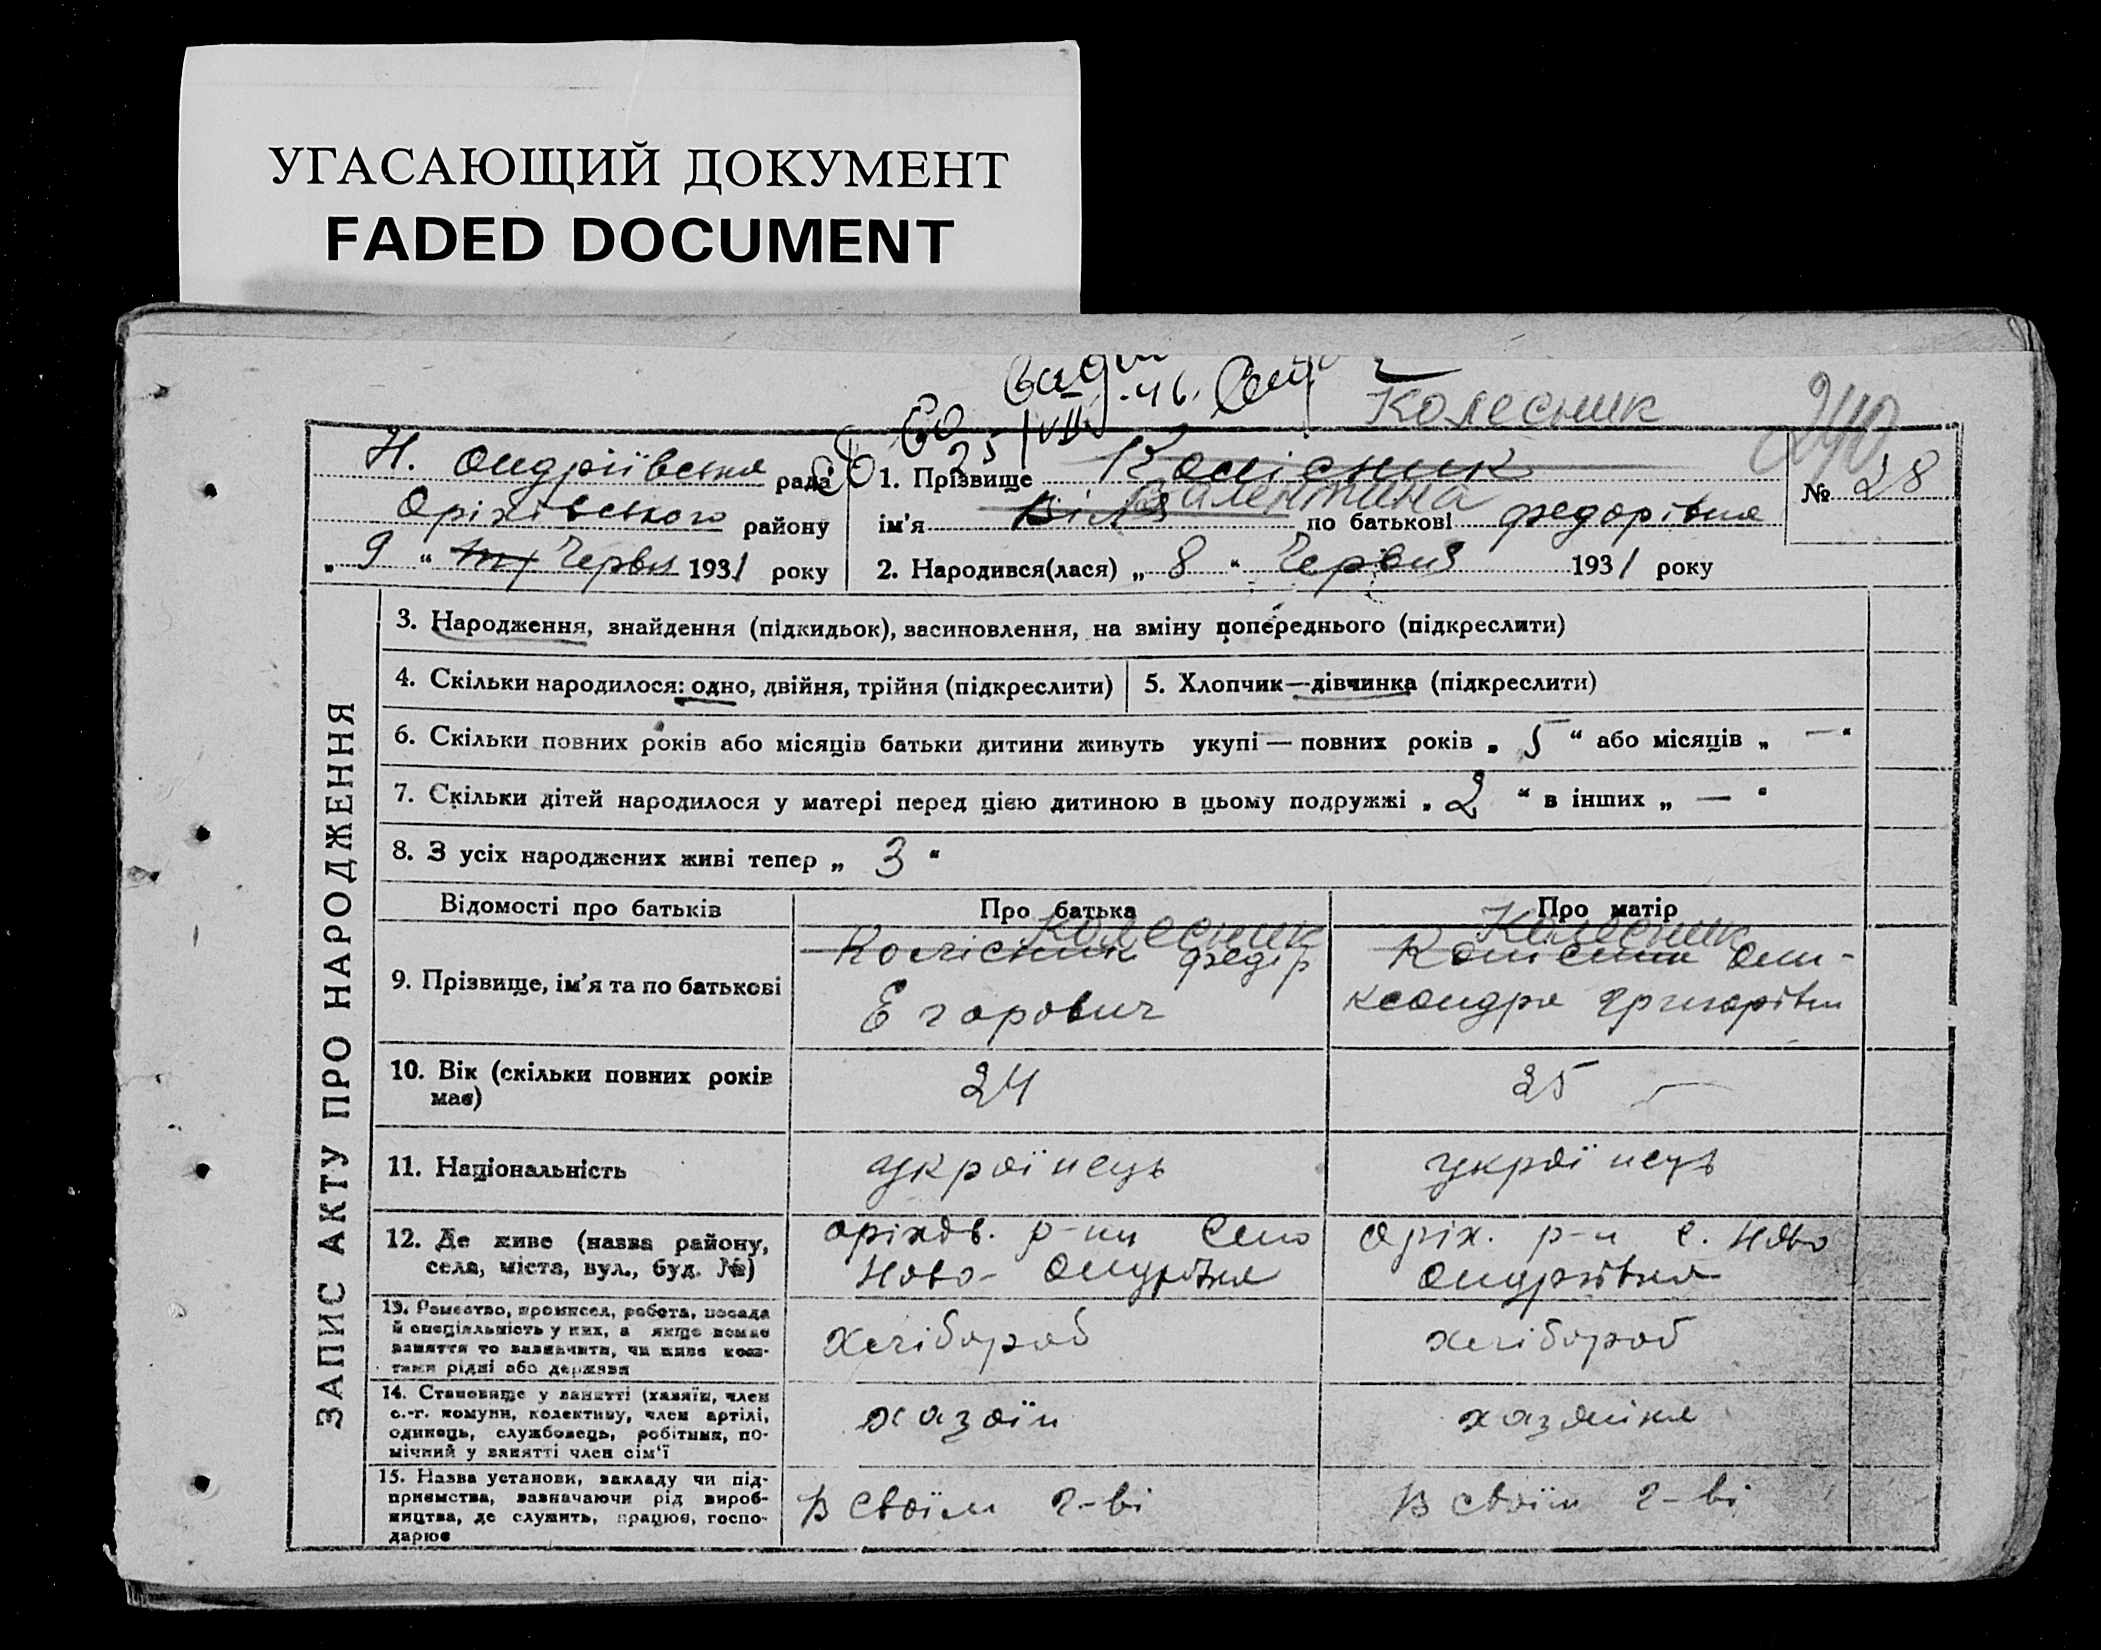 УГАСАЮЩИЙ ДОКУМЕНТ
FADED DOCUMENT
Колесник
240
Н. Андріївська рада
Оріхівського району
„ 9 “ Червня 1931 року
1. Прізвище Колісник
ім’я Віля Валентина по батькові Федорівна
№ 28
2. Народився(лася) „ 8 “ Червня 1931 року
ЗАПИС АКТУ ПРО НАРОДЖЕННЯ
3. Народження, знайдення (підкидьок), засиновлення, на зміну попереднього (підкреслити)
4. Скільки народилося: одно, двійня, трійня (підкреслити)
5. Хлопчик—дівчинка (підкреслити)
6. Скільки повних років або місяців батьки дитини живуть укупі — повних років „ 5 “ або місяців „ — “
7. Скільки дітей народилося у матері перед цією дитиною в цьому подружжі „ 2 “ в інших „ — “
8. З усіх народжених живі тепер „ 3 “
Відомості про батьків
Про батька
Про матір
9. Прізвище, ім’я та по батькові
Колесник
Колісник Федір
Егорович
Колесник
Колісник Оли-
ксандра Григорівна
10. Вік (скільки повних років
має)
24
25 —
11. Національність
українець
українець
12. Де живе (назва району,
села, міста, вул., буд. №)
Оріхов. р-ну Село
Ново-Андрівка
Оріх. р-н с. Ново
Андріївка
13. Ремество, промисел, робота, посада
й спеціяльність у них, а якщо немає
заняття то зазначити, чи живе кош-
тами рідні або держави
хлібороб
хлібороб
14. Становище у занятті (хазяїн, член
с.-г. комуни, колективу, член артілі,
одинець, службовець, робітник, по-
мічний у занятті член сім’ї
хазяїн
хазяйка
15. Назва установи, закладу чи під-
приємства, зазначаючи рід вироб-
ництва, де служить, працює, госпо-
дарює
В своїм г-ві
В своїм г-ві